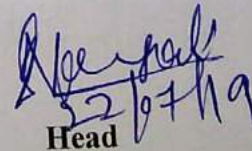 22/07/19
Head